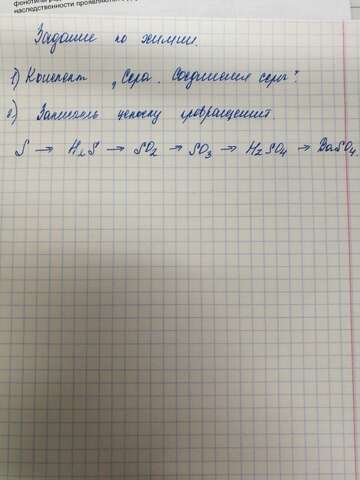 фенотипы р
наследственности проявляются
Задание по химии.
1) Конспект „Сера. Соединения серы".
2) Записать цепочку превращений.
S → H₂S → SO₂ → SO₃ → H₂SO₄ → BaSO₄.